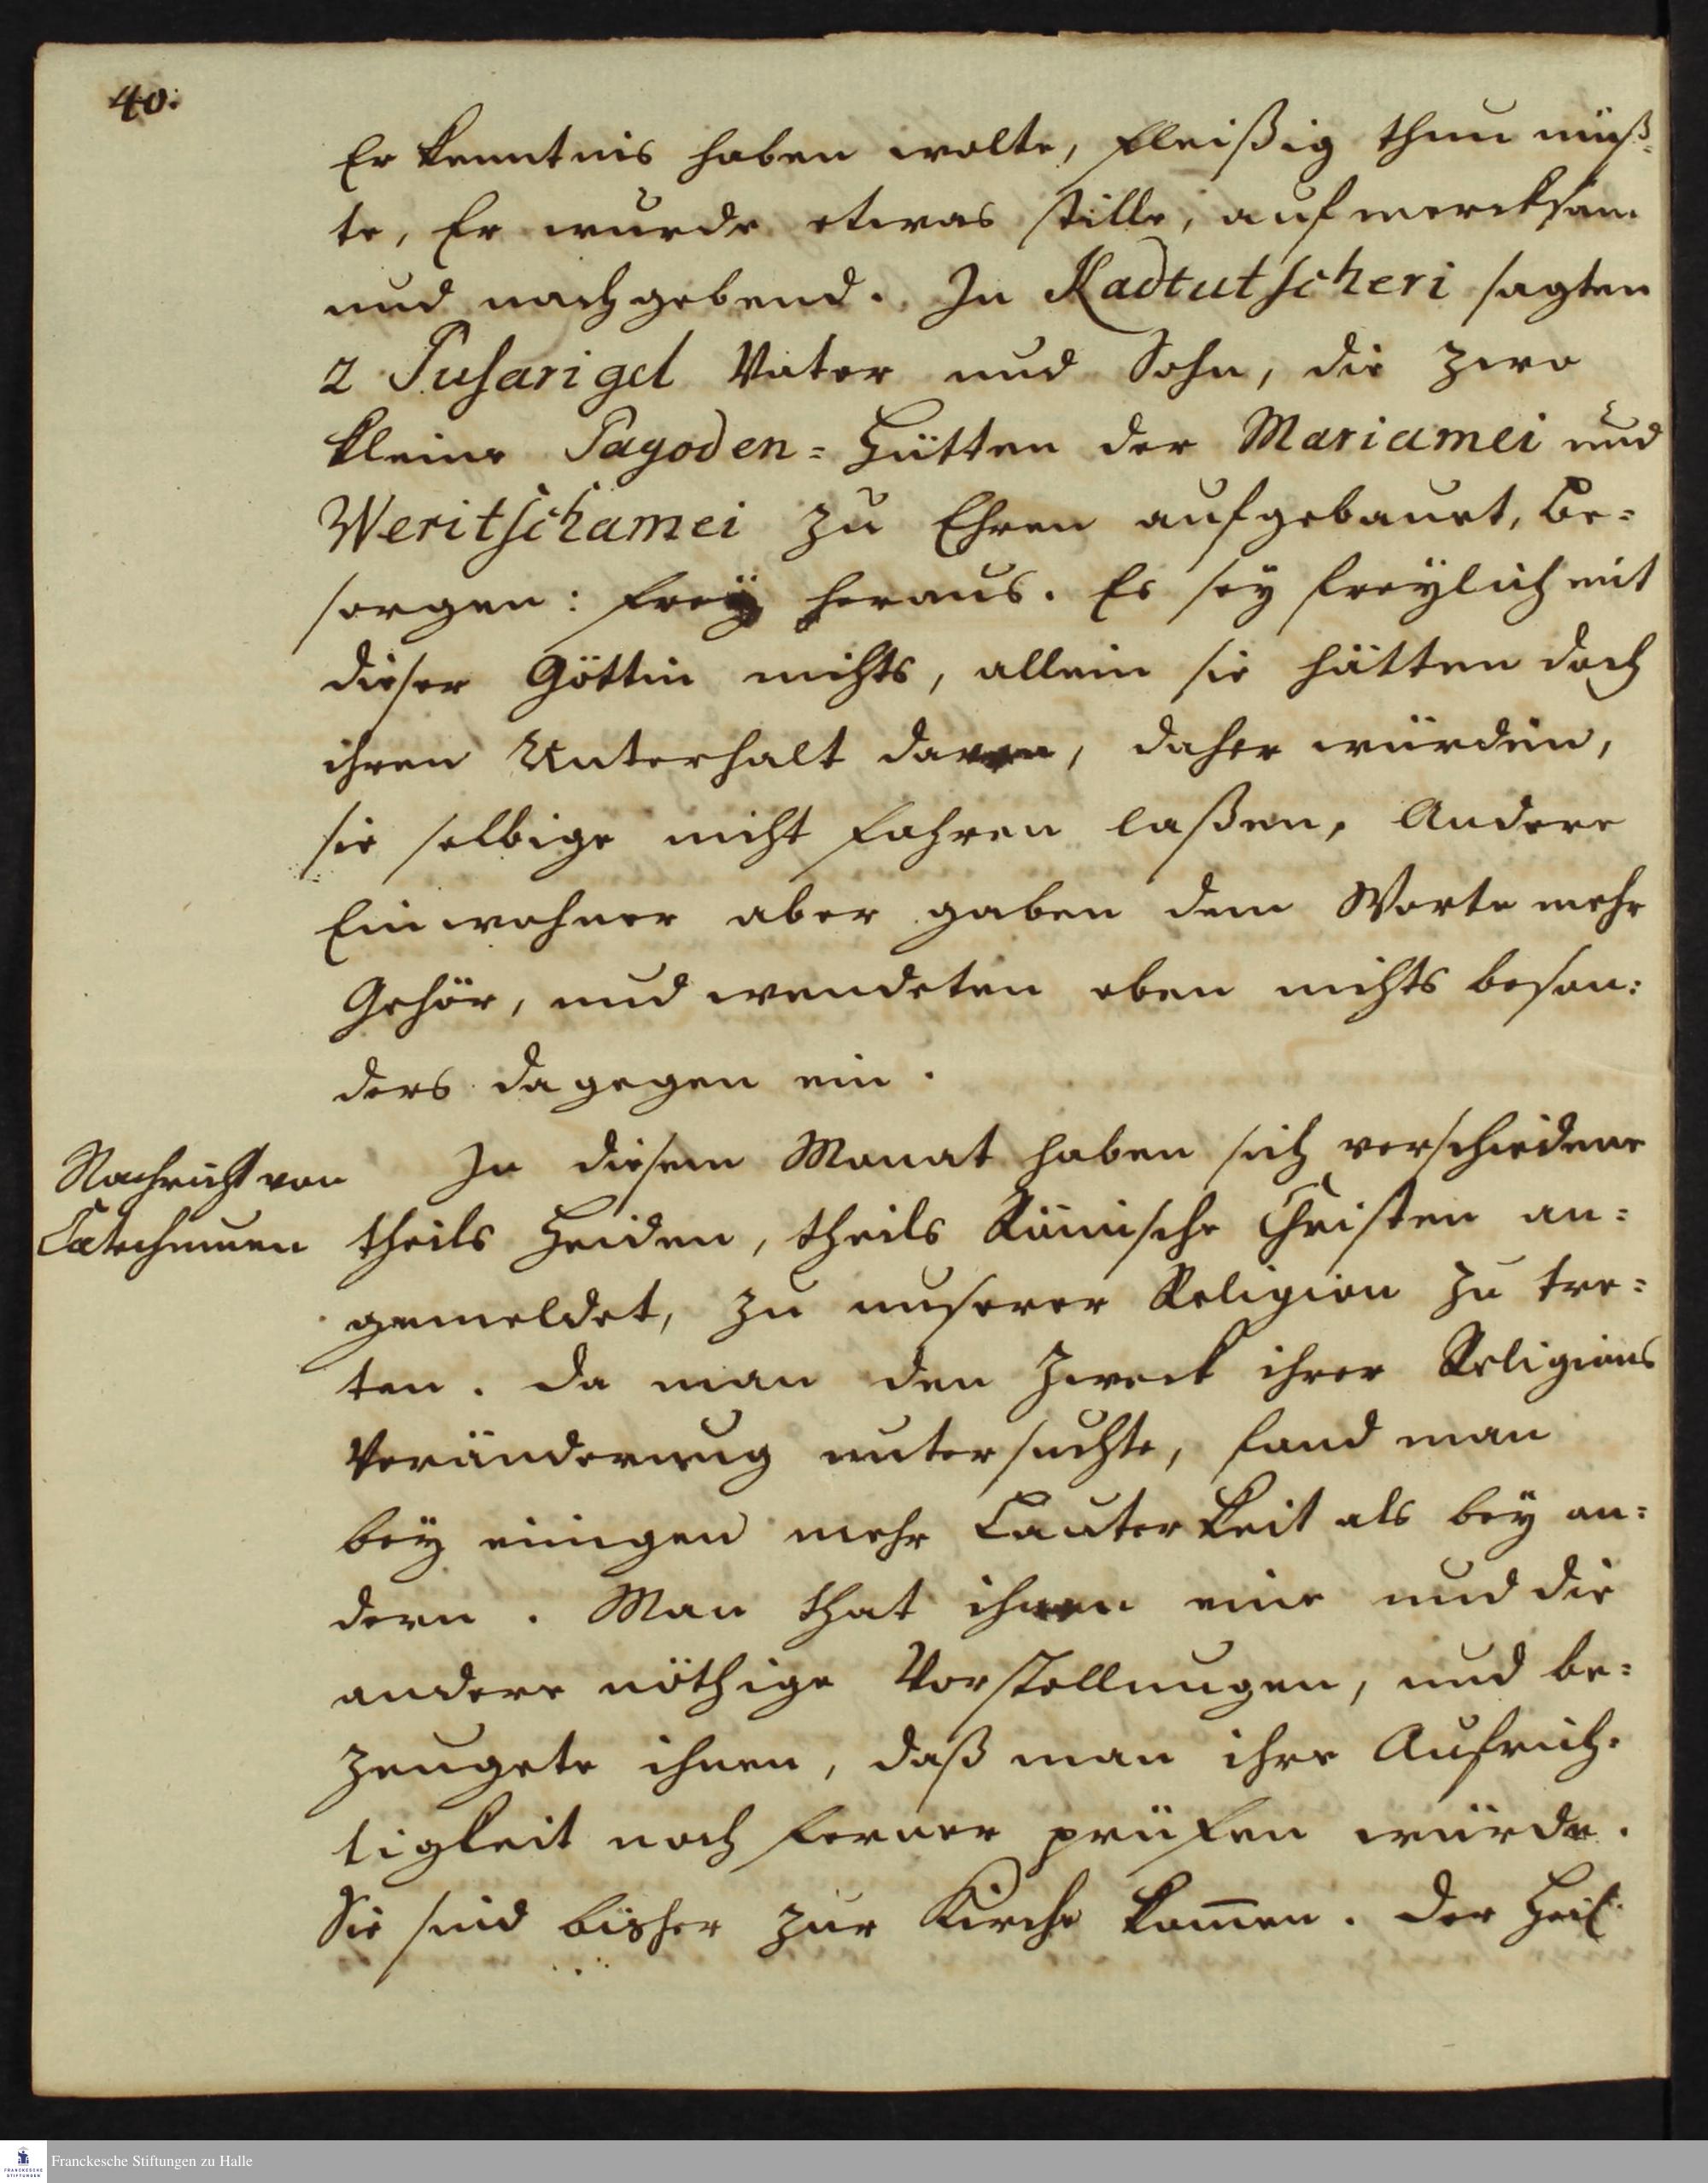 40.
Er kenntnis haben wolte, fleißig thun müß-
te, Er wurde etwas stille, aufmercksam
und nachgebend. In Kadtutscheri sagten
2 Pusarigel Vater und Sohn, die zwo
kleine Pagoden= Hütten der Mariamei und
Weritschamei zu Ehren aufgebauet, be=
sorgen: frey heraus. Es sey freylich mit
dieser Göttin nichts, allein sie hätten doch
ihren Unterhalt davon, daher würden,
sie selbige nicht fahren laßen, Andere
Einwohner aber gaben dem Worte mehr
Gehör, und wendeten eben nichts beson=
ders dagegen ein.
Nachricht von
Catechumen
In diesem Monat haben sich verschiedene
theils Heiden, theils Römische Christen an=
gemeldet, zu unserer Religion zu tre=
ten. Da man den Zweck ihrer Religions
Veränderung untersuchte, fand man
bey einigen mehr Lauterkeit als bey an=
dern. Man that ihnen eine und die
andere nöthige Vorstellungen, und be=
zeugete ihnen, daß man ihre Aufrich-
tigkeit noch ferner prüfen würde.
Sie sind bisher zur Kirche kom̅en. Der Heil.
FRANCKESCHE STIFTUNGEN
Franckesche Stiftungen zu Halle